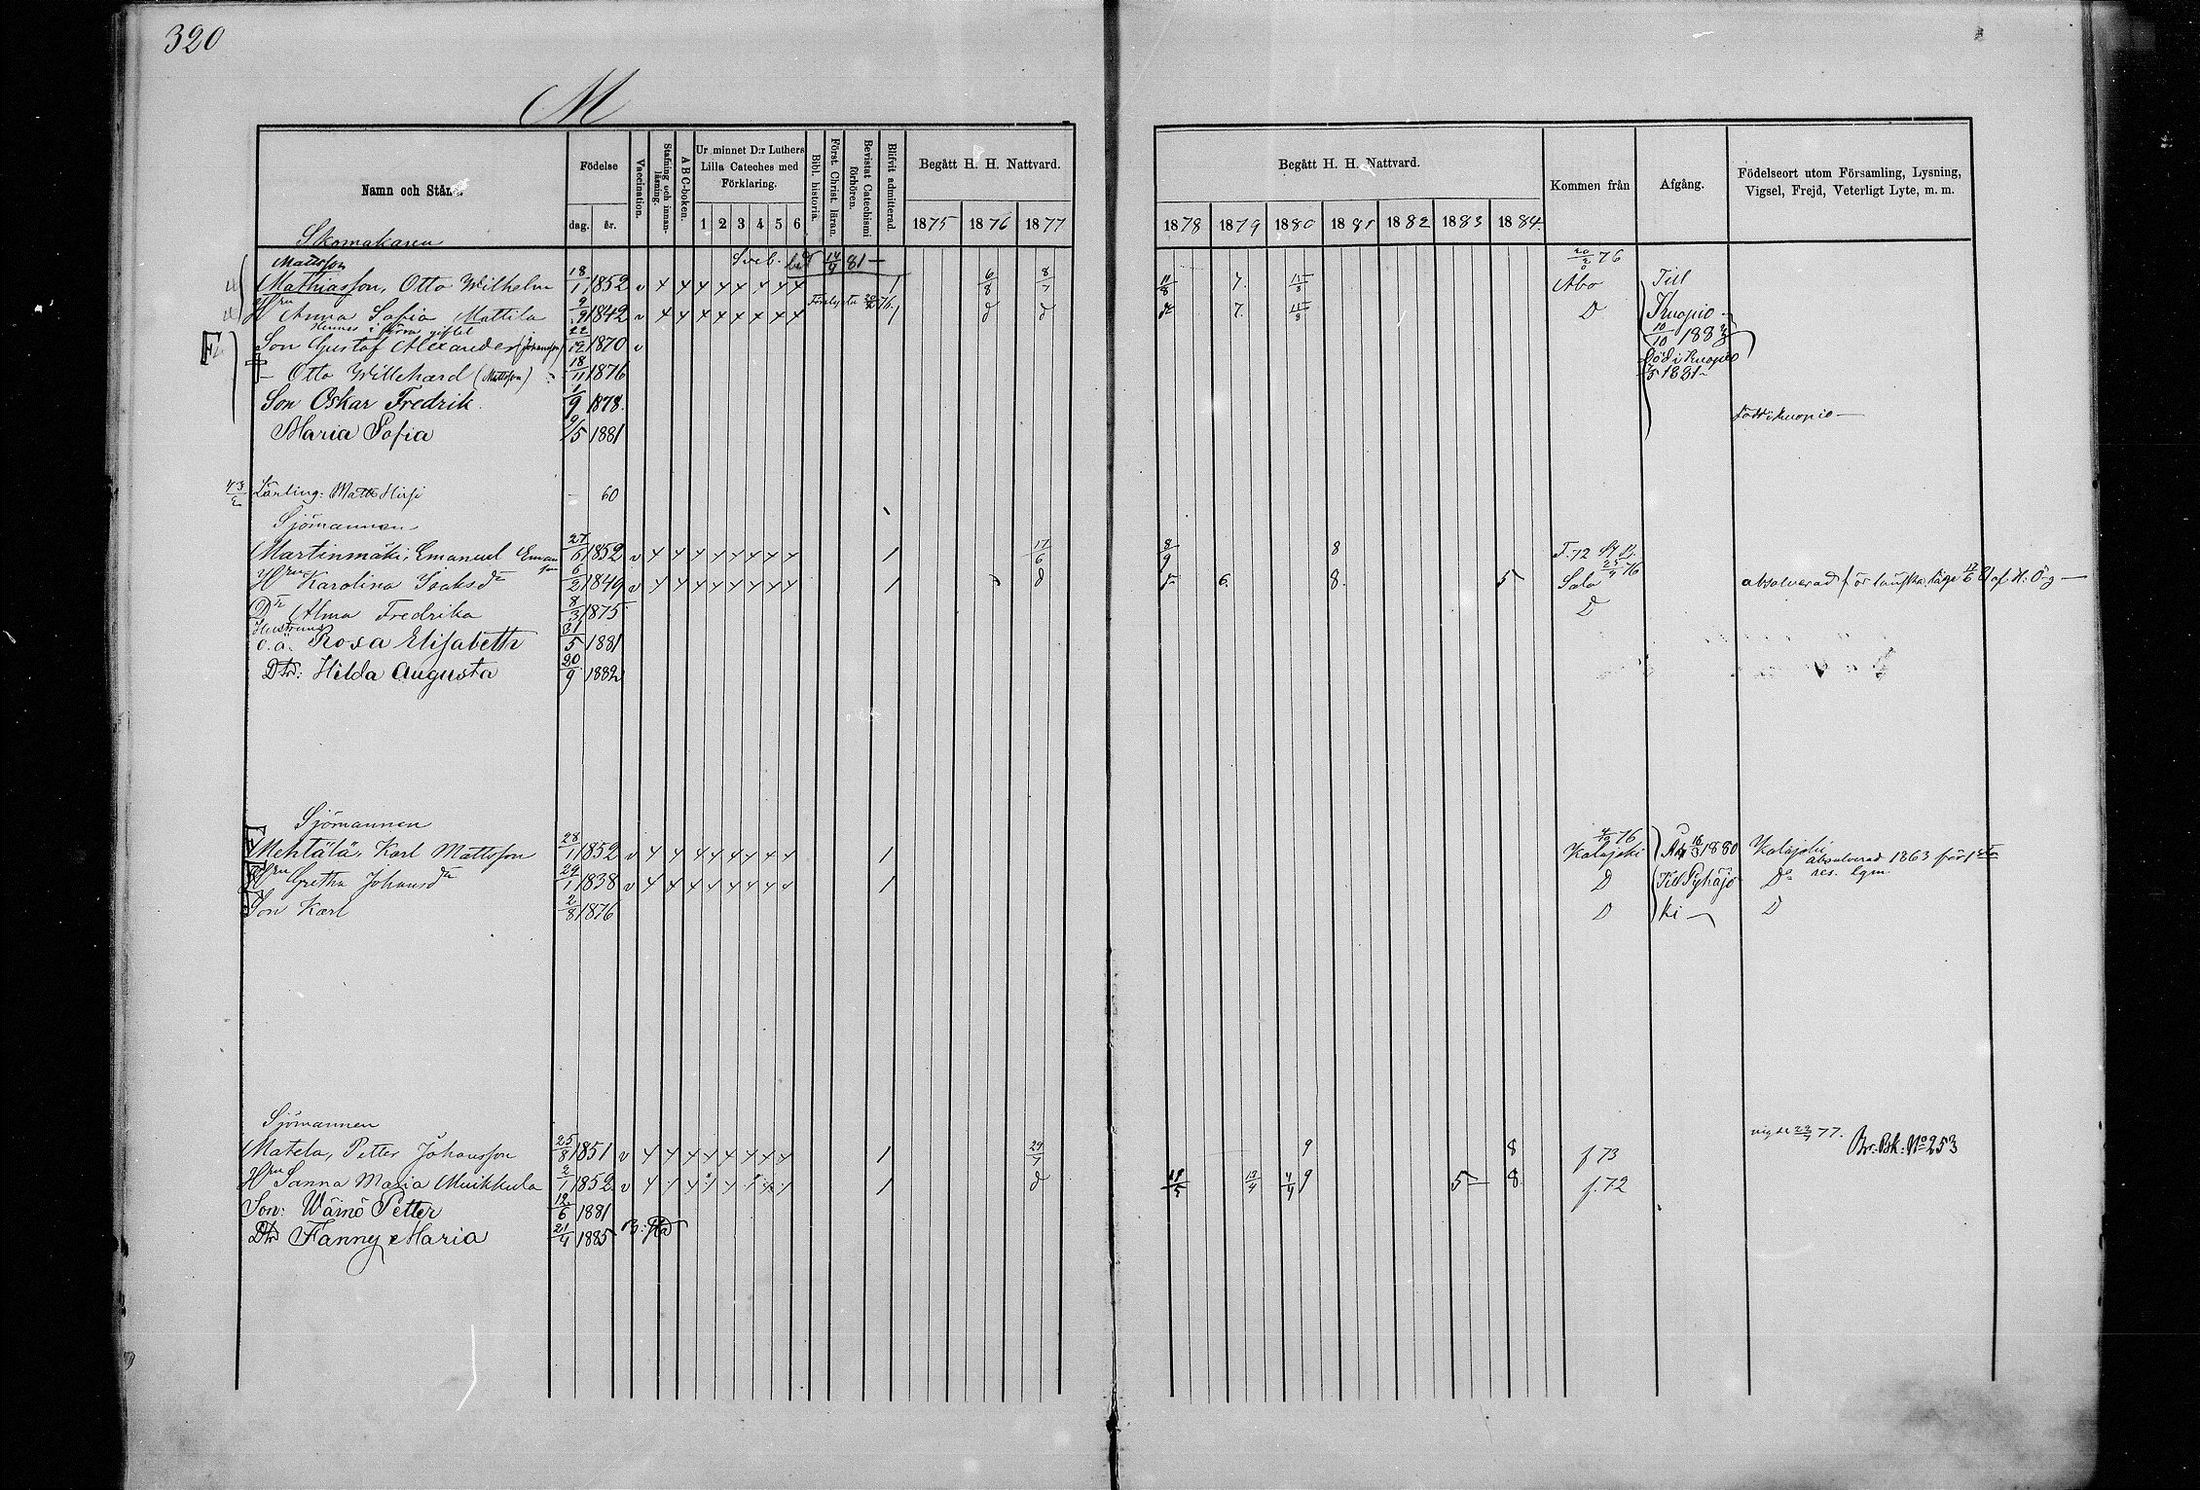 320
M
Namn och Stånd.
Födelse
dag. år.
Vaccination.
Stafning och innanläsning.
A B C-boken.
Ur minnet D:r Luthers Lilla Cateches med Förklaring.
1 2 3 4 5 6
Bibl. historia.
Först. Christ. läran.
Bevistat Catechismi förhören.
Blifvit admitterad.
Begått H. H. Nattvard.
1875 1876 1877
Begått H. H. Nattvard.
1878 1879 1880 1881 1882 1883 1884
Kommen från
Afgång.
Födelseort utom Församling, Lysning, Vigsel, Frejd, Veterligt Lyte, m. m.
Skomakaren
Mattsson
20/2 76
Mathiasson, Otto Wilhelm 18/1 1852 v 1 6/8 8/7 11/8 7. 15/8 Åbo Till
Hru Anna Sofia Mattila 9/9 1842 v 1 d d 7. 15/8 D Kuopio
Hennes i förra giftet
10/10 1883
Son Gustaf Alexander (Johansson) 22/12 1870 v
Död i Kuopio
– Otto Willehard (Mattsson) 18/11 1876 1881
Son Oskar Fredrik. 1/9 1878.
född i Kuopio —
Maria Sofia 9/5 1881
Lärling: Matts Hirsi – 60
Sjömannen
Martinmäki, Emanuel Emanson 27/6 1852 v 1 17/6 8/9 8 F. 72
25/4 76
Hru Karolina Isaksdr 6/2 1849 v 1 d 6. 8. 5 Salo absolverad för
Dr Alma Fredrika 8/3 1875 D
Hustruns
o.ä. Rosa Elisabeth 31/5 1881
Dtr: Hilda Augusta 20/9 1882
Sjömannen
4/9 76
Mehtälä, Karl Mattsson 28/1 1852 v 1 Kalajoki 1880 Kalajoki
absolverad 1863 för 1sta
res. lgm
Hru Gretha Johansdr 29/1 1838 v 1 D Till Pyhäjo Do
Son Karl 2/8 1876 D ki — D
Sjömannen
vigde 22/7 77.
Br. Bk: No 253
Matela, Petter Johansson 25/8 1851 v 1 29/7 9 8 f 73
Hru Sanna Maria Muikkula 2/1 1852 v 1 d 13/4 4/9 9 5 8 f. 72
Son: Wäinö Petter 12/6 1881
Dtr Fanny Maria 21/4 1885